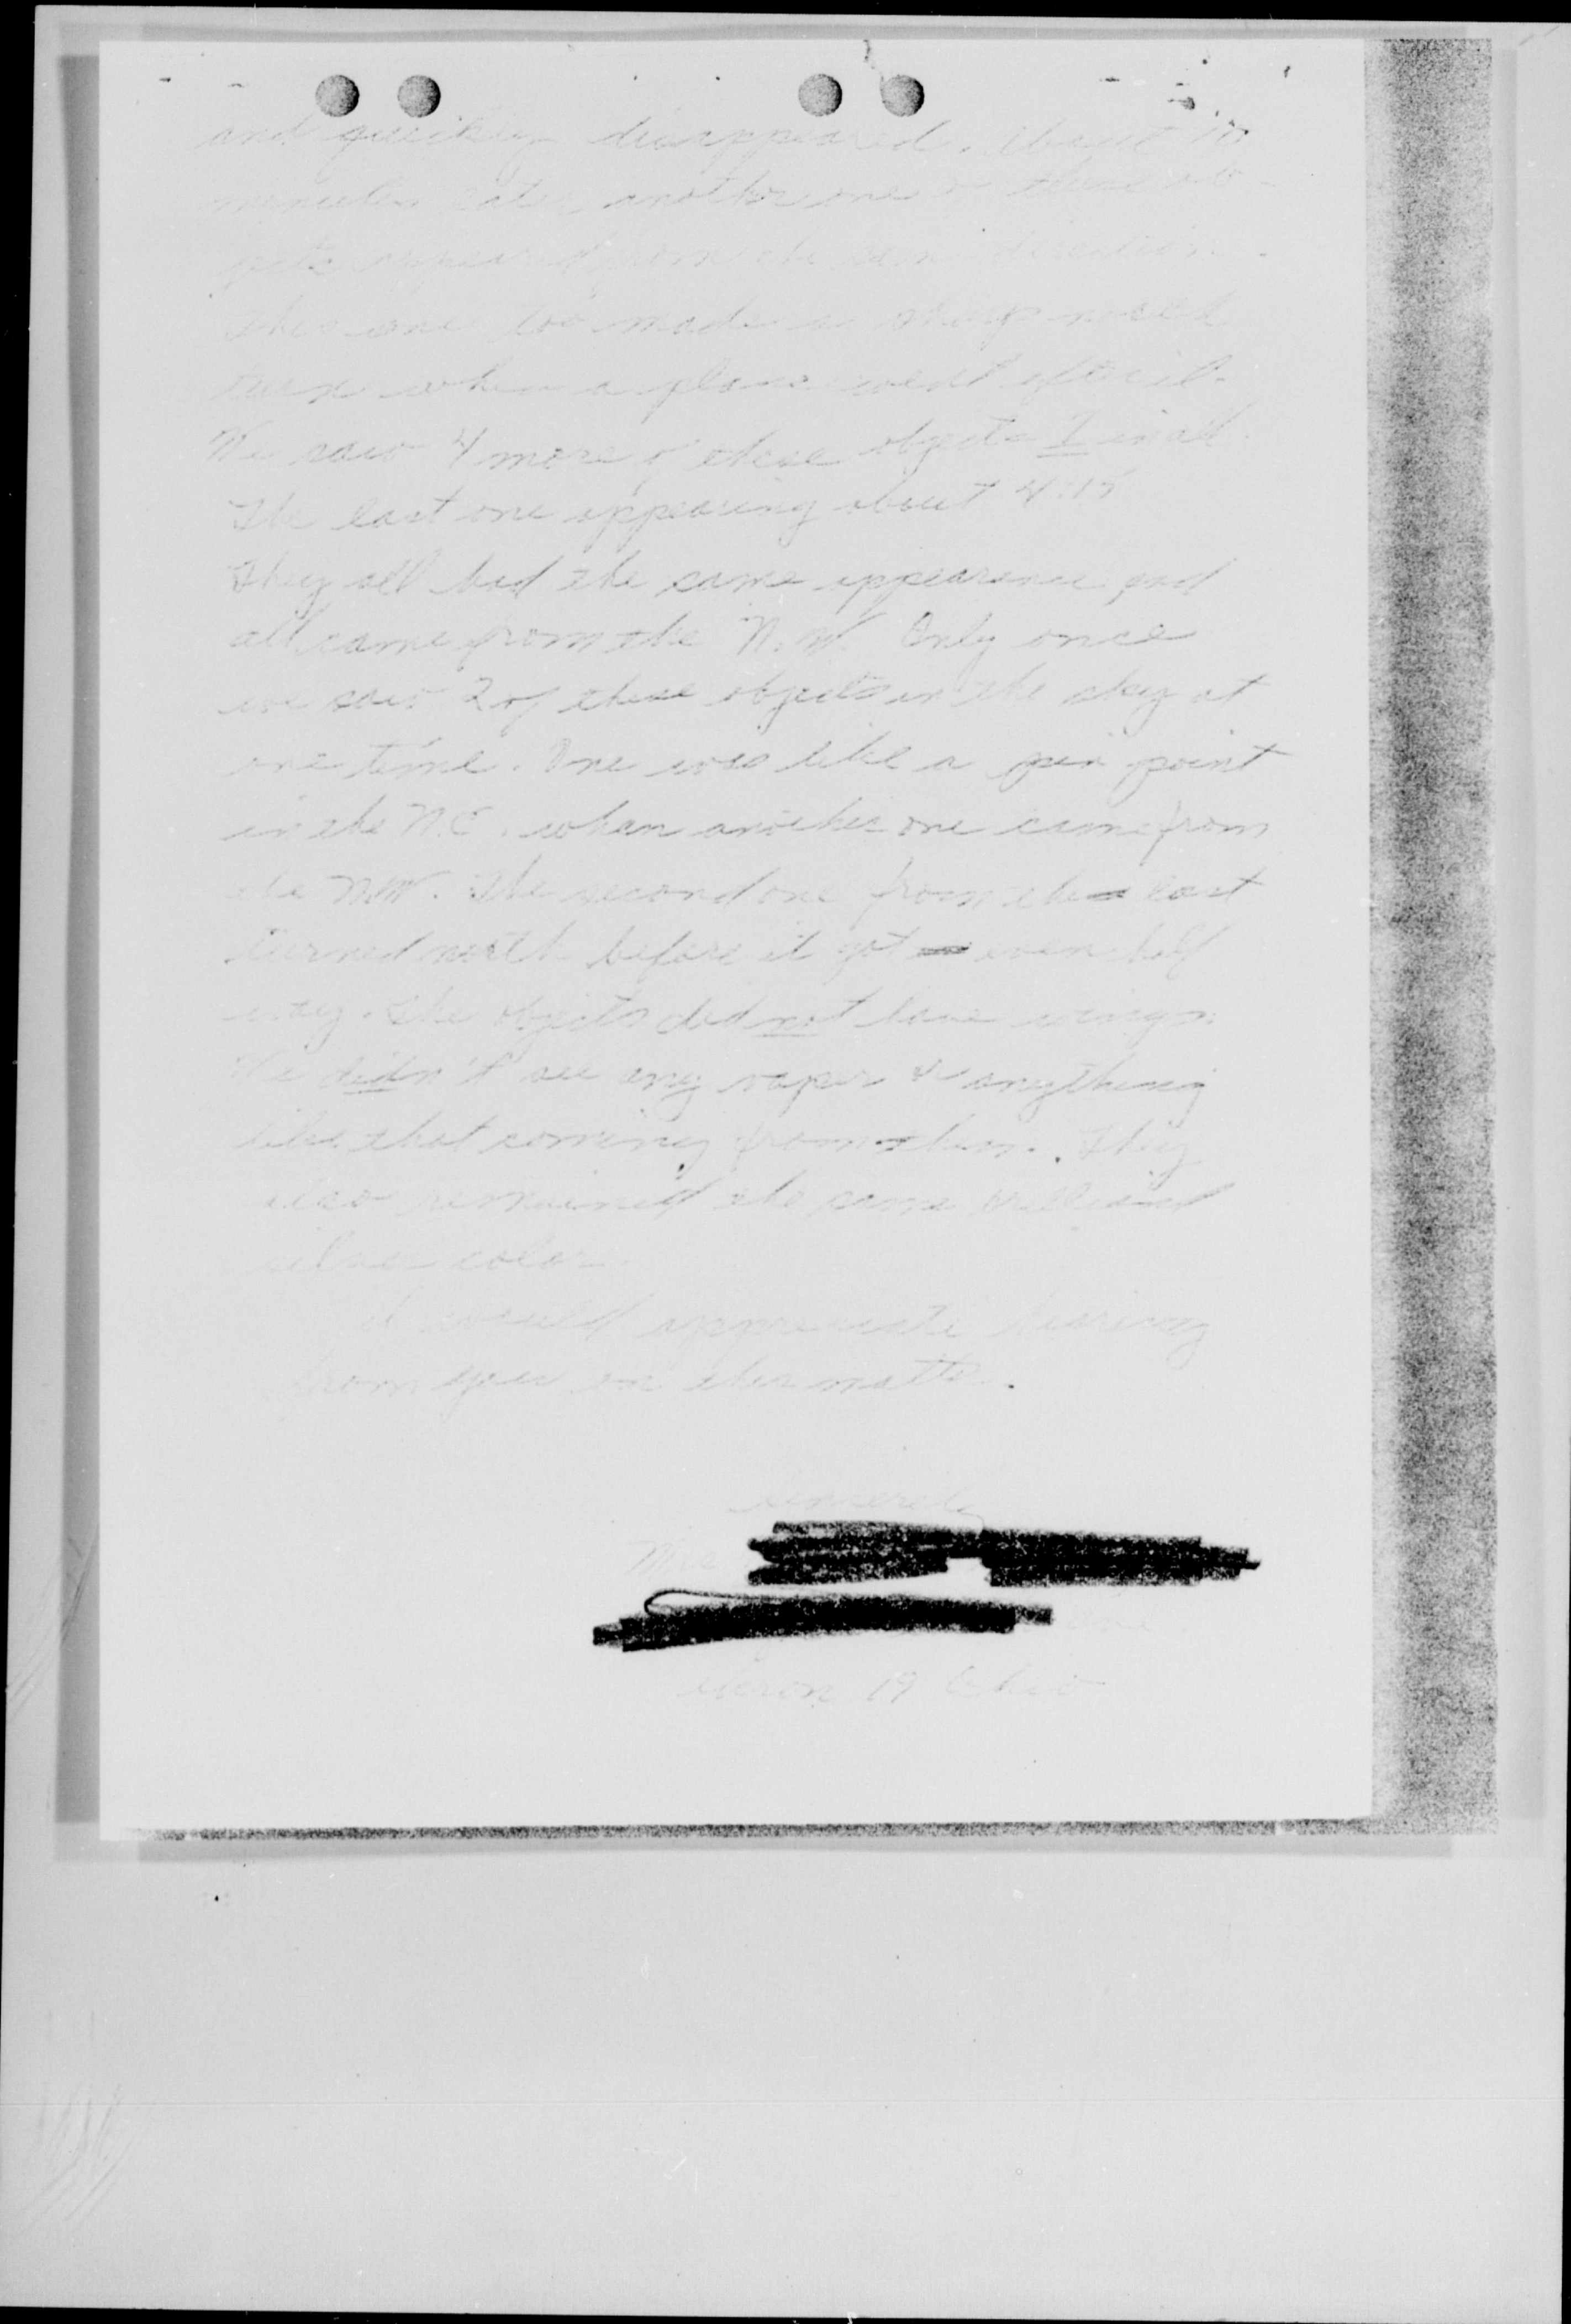 and quickly disappeared. About 10
minutes later another one of these ob-
jects appeared from the same direction.
This one too made a sharp north
turn when a plane went after it.
We saw 4 more of these objects 7 in all.
The last one appearing about 4:15
They all had the same appearance and
all came from the N.W. Only once
we saw 2 of these objects in the sky at
one time. One was like a pin point
in the N.E. when another one came from
the N.W. The second one from the last
turned north before it got even half
way. The objects did not have wings.
We didn't see any vapor or anything
like that coming from them. They
also remained the same brilliant
silver color.
I would appreciate hearing
from you on this matter.
Sincerely
Mrs
Akron 19 Ohio